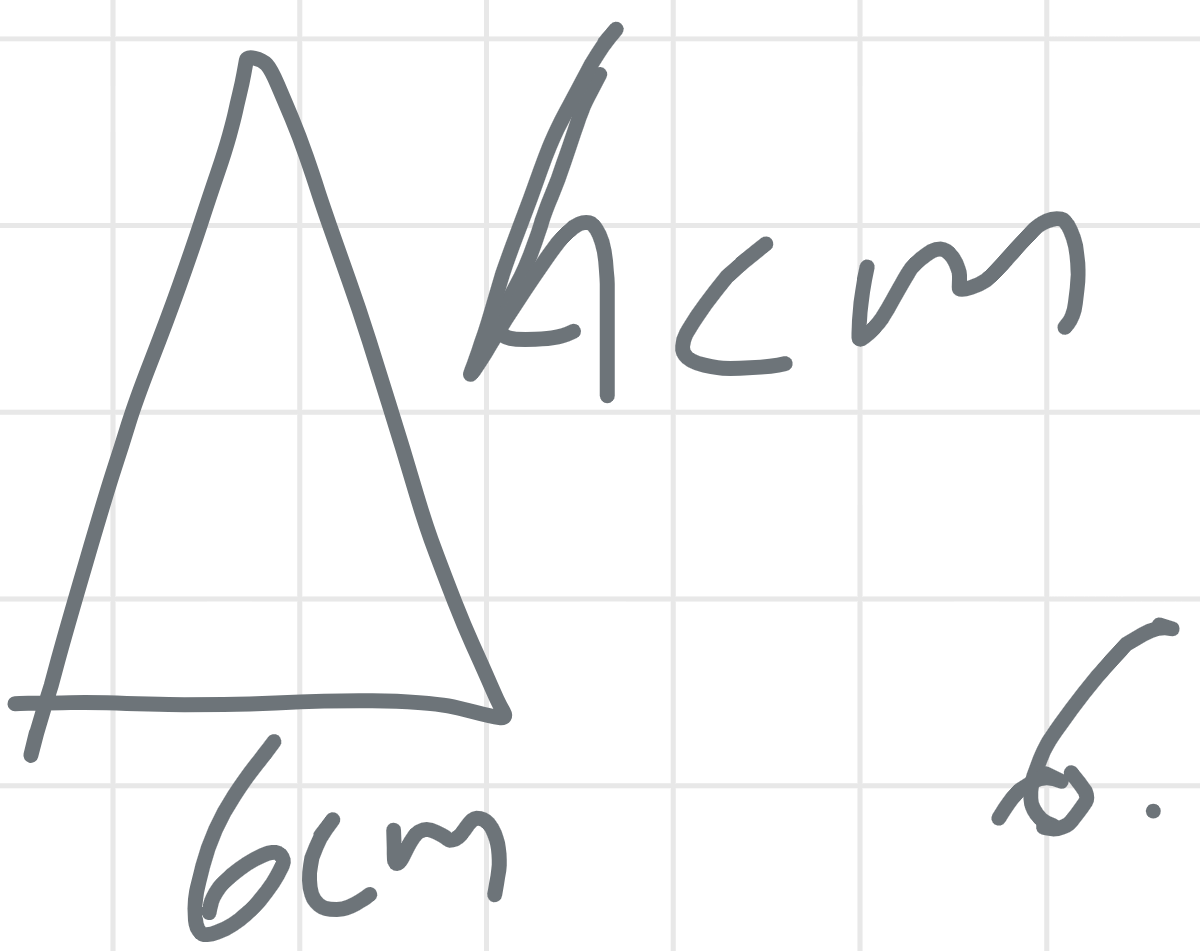 hcm
6cm
6.